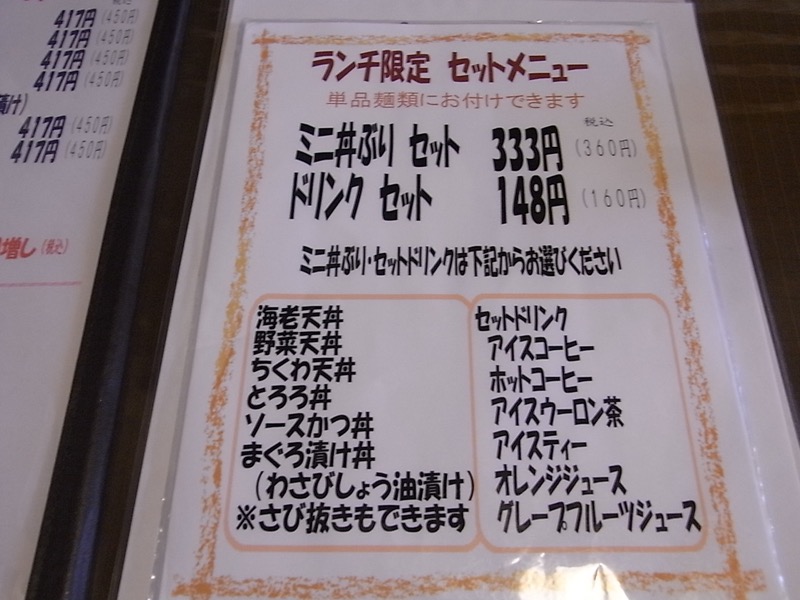 税込
417円(450円)
417円(450円)
417円(450円)
417円(450円)
漬け)
417円(450円)
417円(450円)
増し(税込)
ランチ限定 セットメニュー
単品麺類にお付けできます
税込
ミニ丼ぶり セット 333円(360円)
ドリンク セット 148円(160円)
ミニ丼ぶり・セットドリンクは下記からお選びください
海老天丼
野菜天丼
ちくわ天丼
とろろ丼
ソースかつ丼
まぐろ漬け丼
(わさびしょう油漬け)
※さび抜きもできます
セットドリンク
アイスコーヒー
ホットコーヒー
アイスウーロン茶
アイスティー
オレンジジュース
グレープフルーツジュース